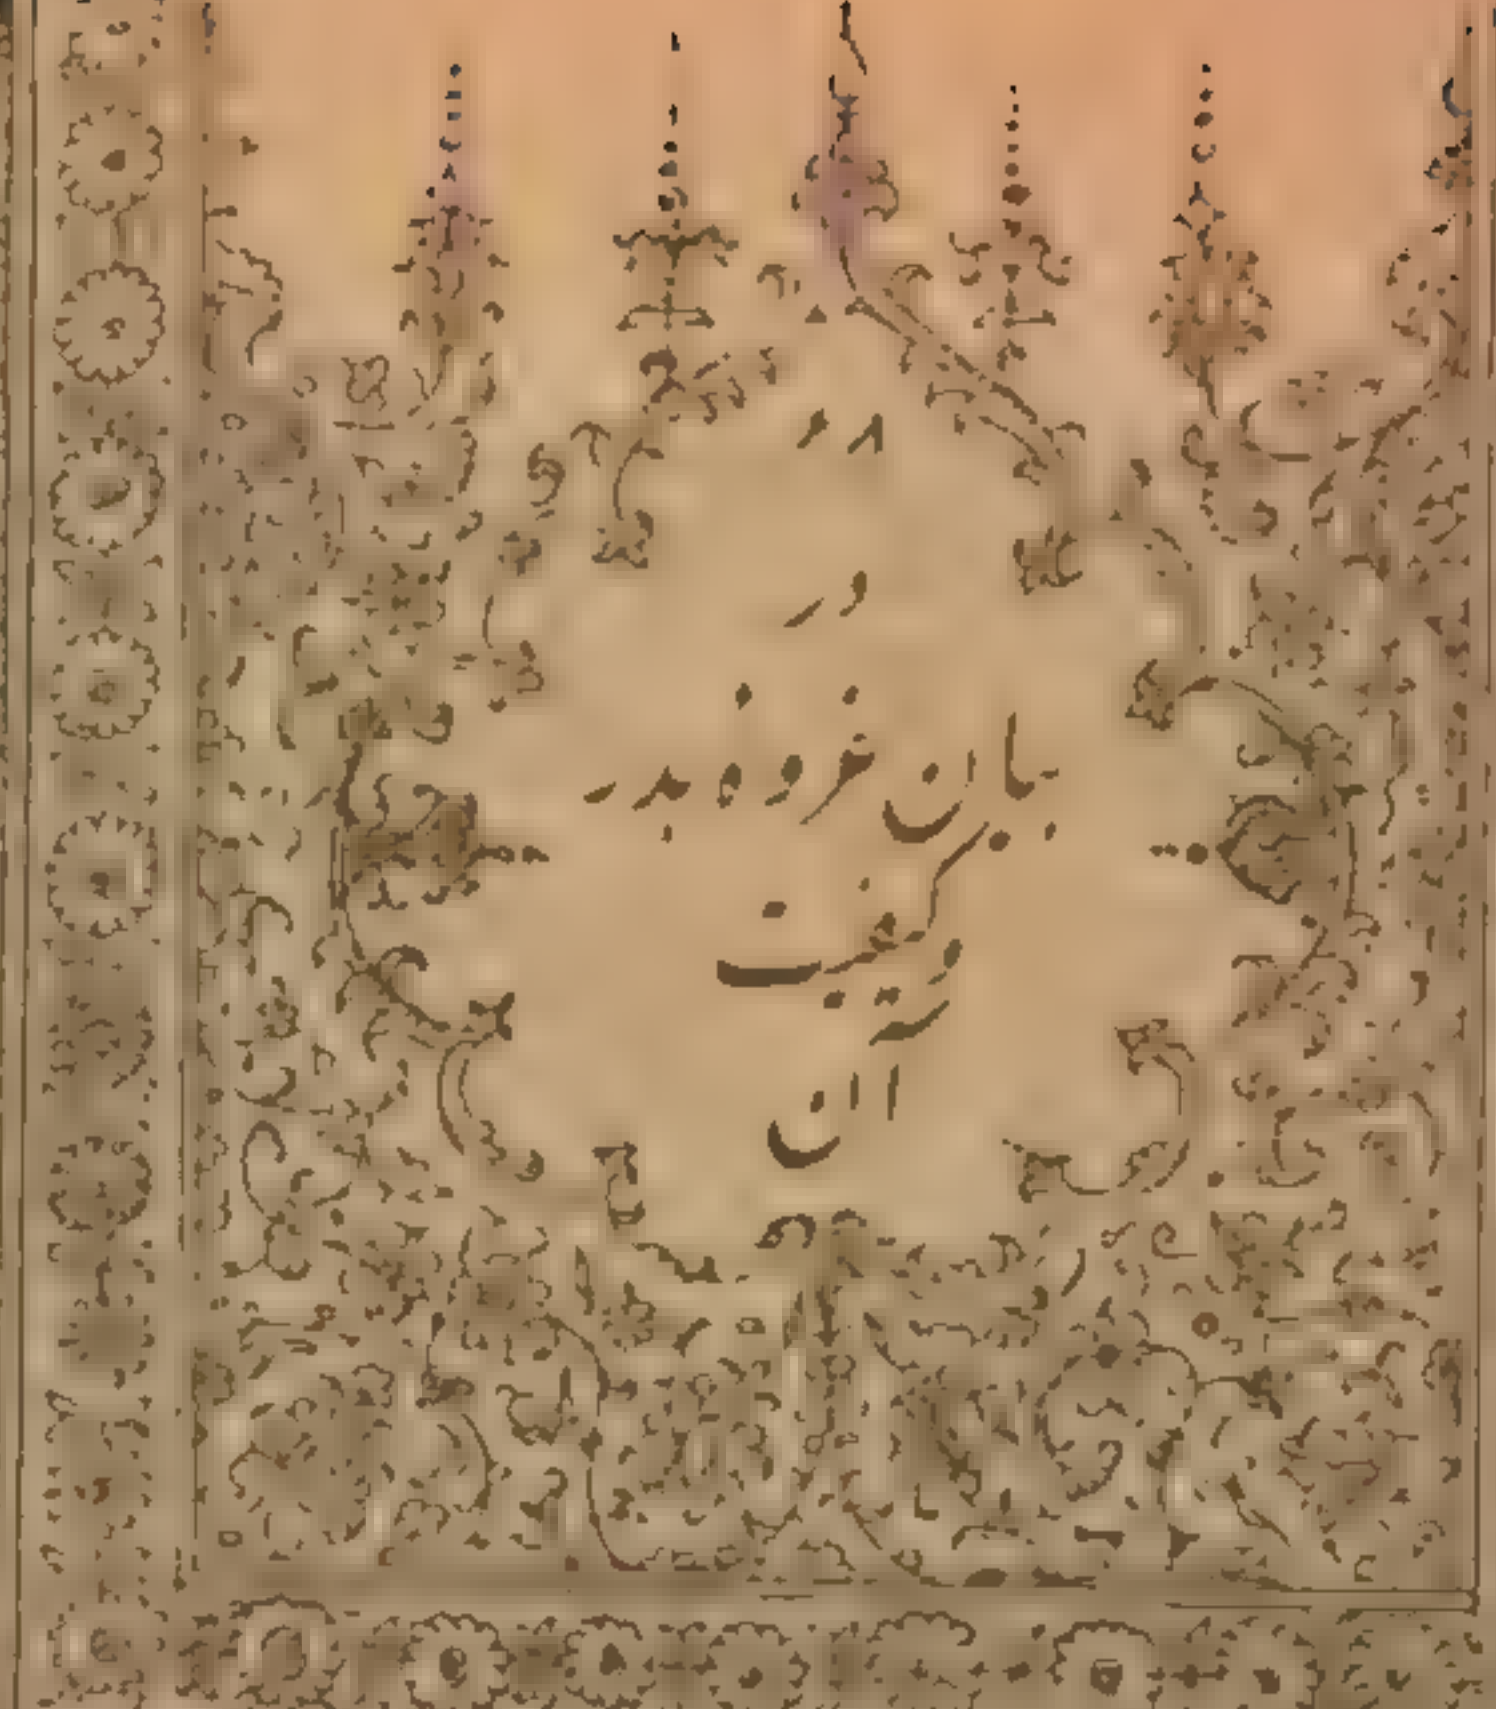 ۲۸
در
بیان غزوه بدر
و کیفیت
ان